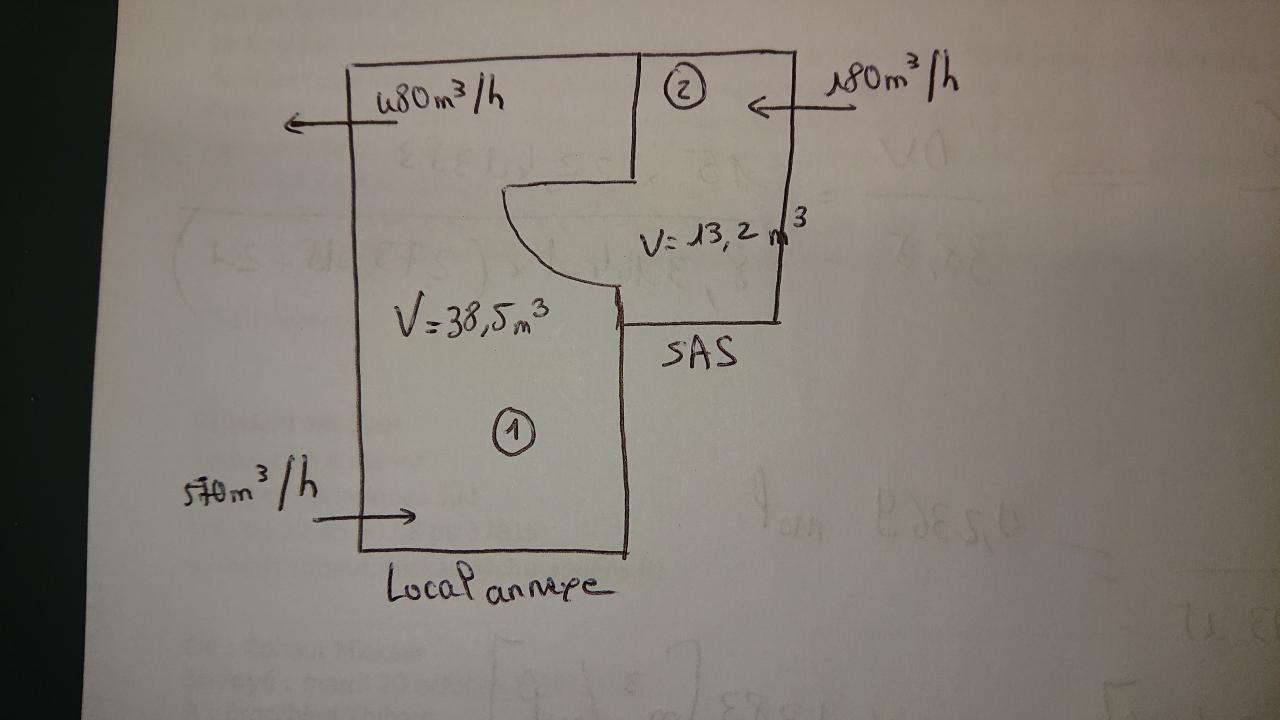 480m³/h
②
180m³/h
V=13,2 m³
V=38,5m³
SAS
①
570m³/h
Local annexe